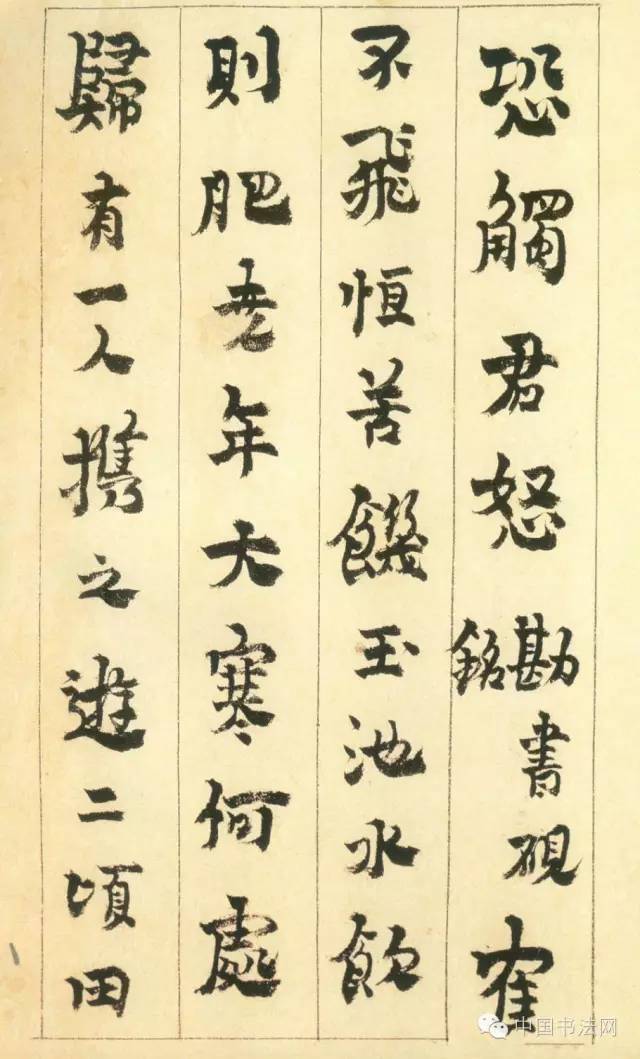 恐觸君怒 勘書硯銘 寉
不飛恒苦饑玉池水飲
則肥堯年大寒何處
歸有一人攜之遊二頃田
中国书法网